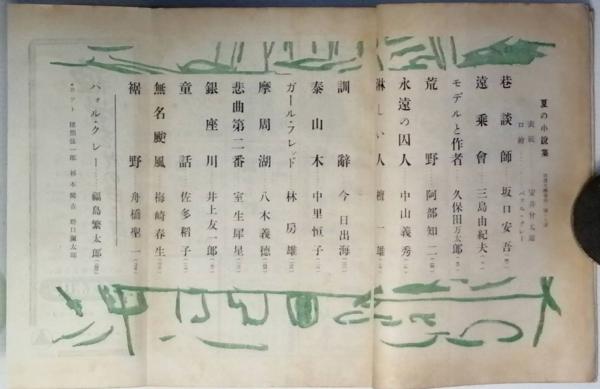 夏の小説集
表紙 安井曾太郎
口絵 パウル・クレー
巷談師 坂口安吾
遠乗會 三島由紀夫
モデルと作者 久保田万太郎
荒野 阿部知二
永遠の囚人 中山義秀
淋しい人 檀一雄
訓辭 今日出海
泰山木 中里恒子
ガール・フレンド 林房雄
摩周湖 八木義徳
悲曲第二番 室生犀星
銀座川 井上友一郎
童話 佐多稻子
無名颱風 梅崎春生
裾野 舟橋聖一
パウル・クレー 福島繁太郎